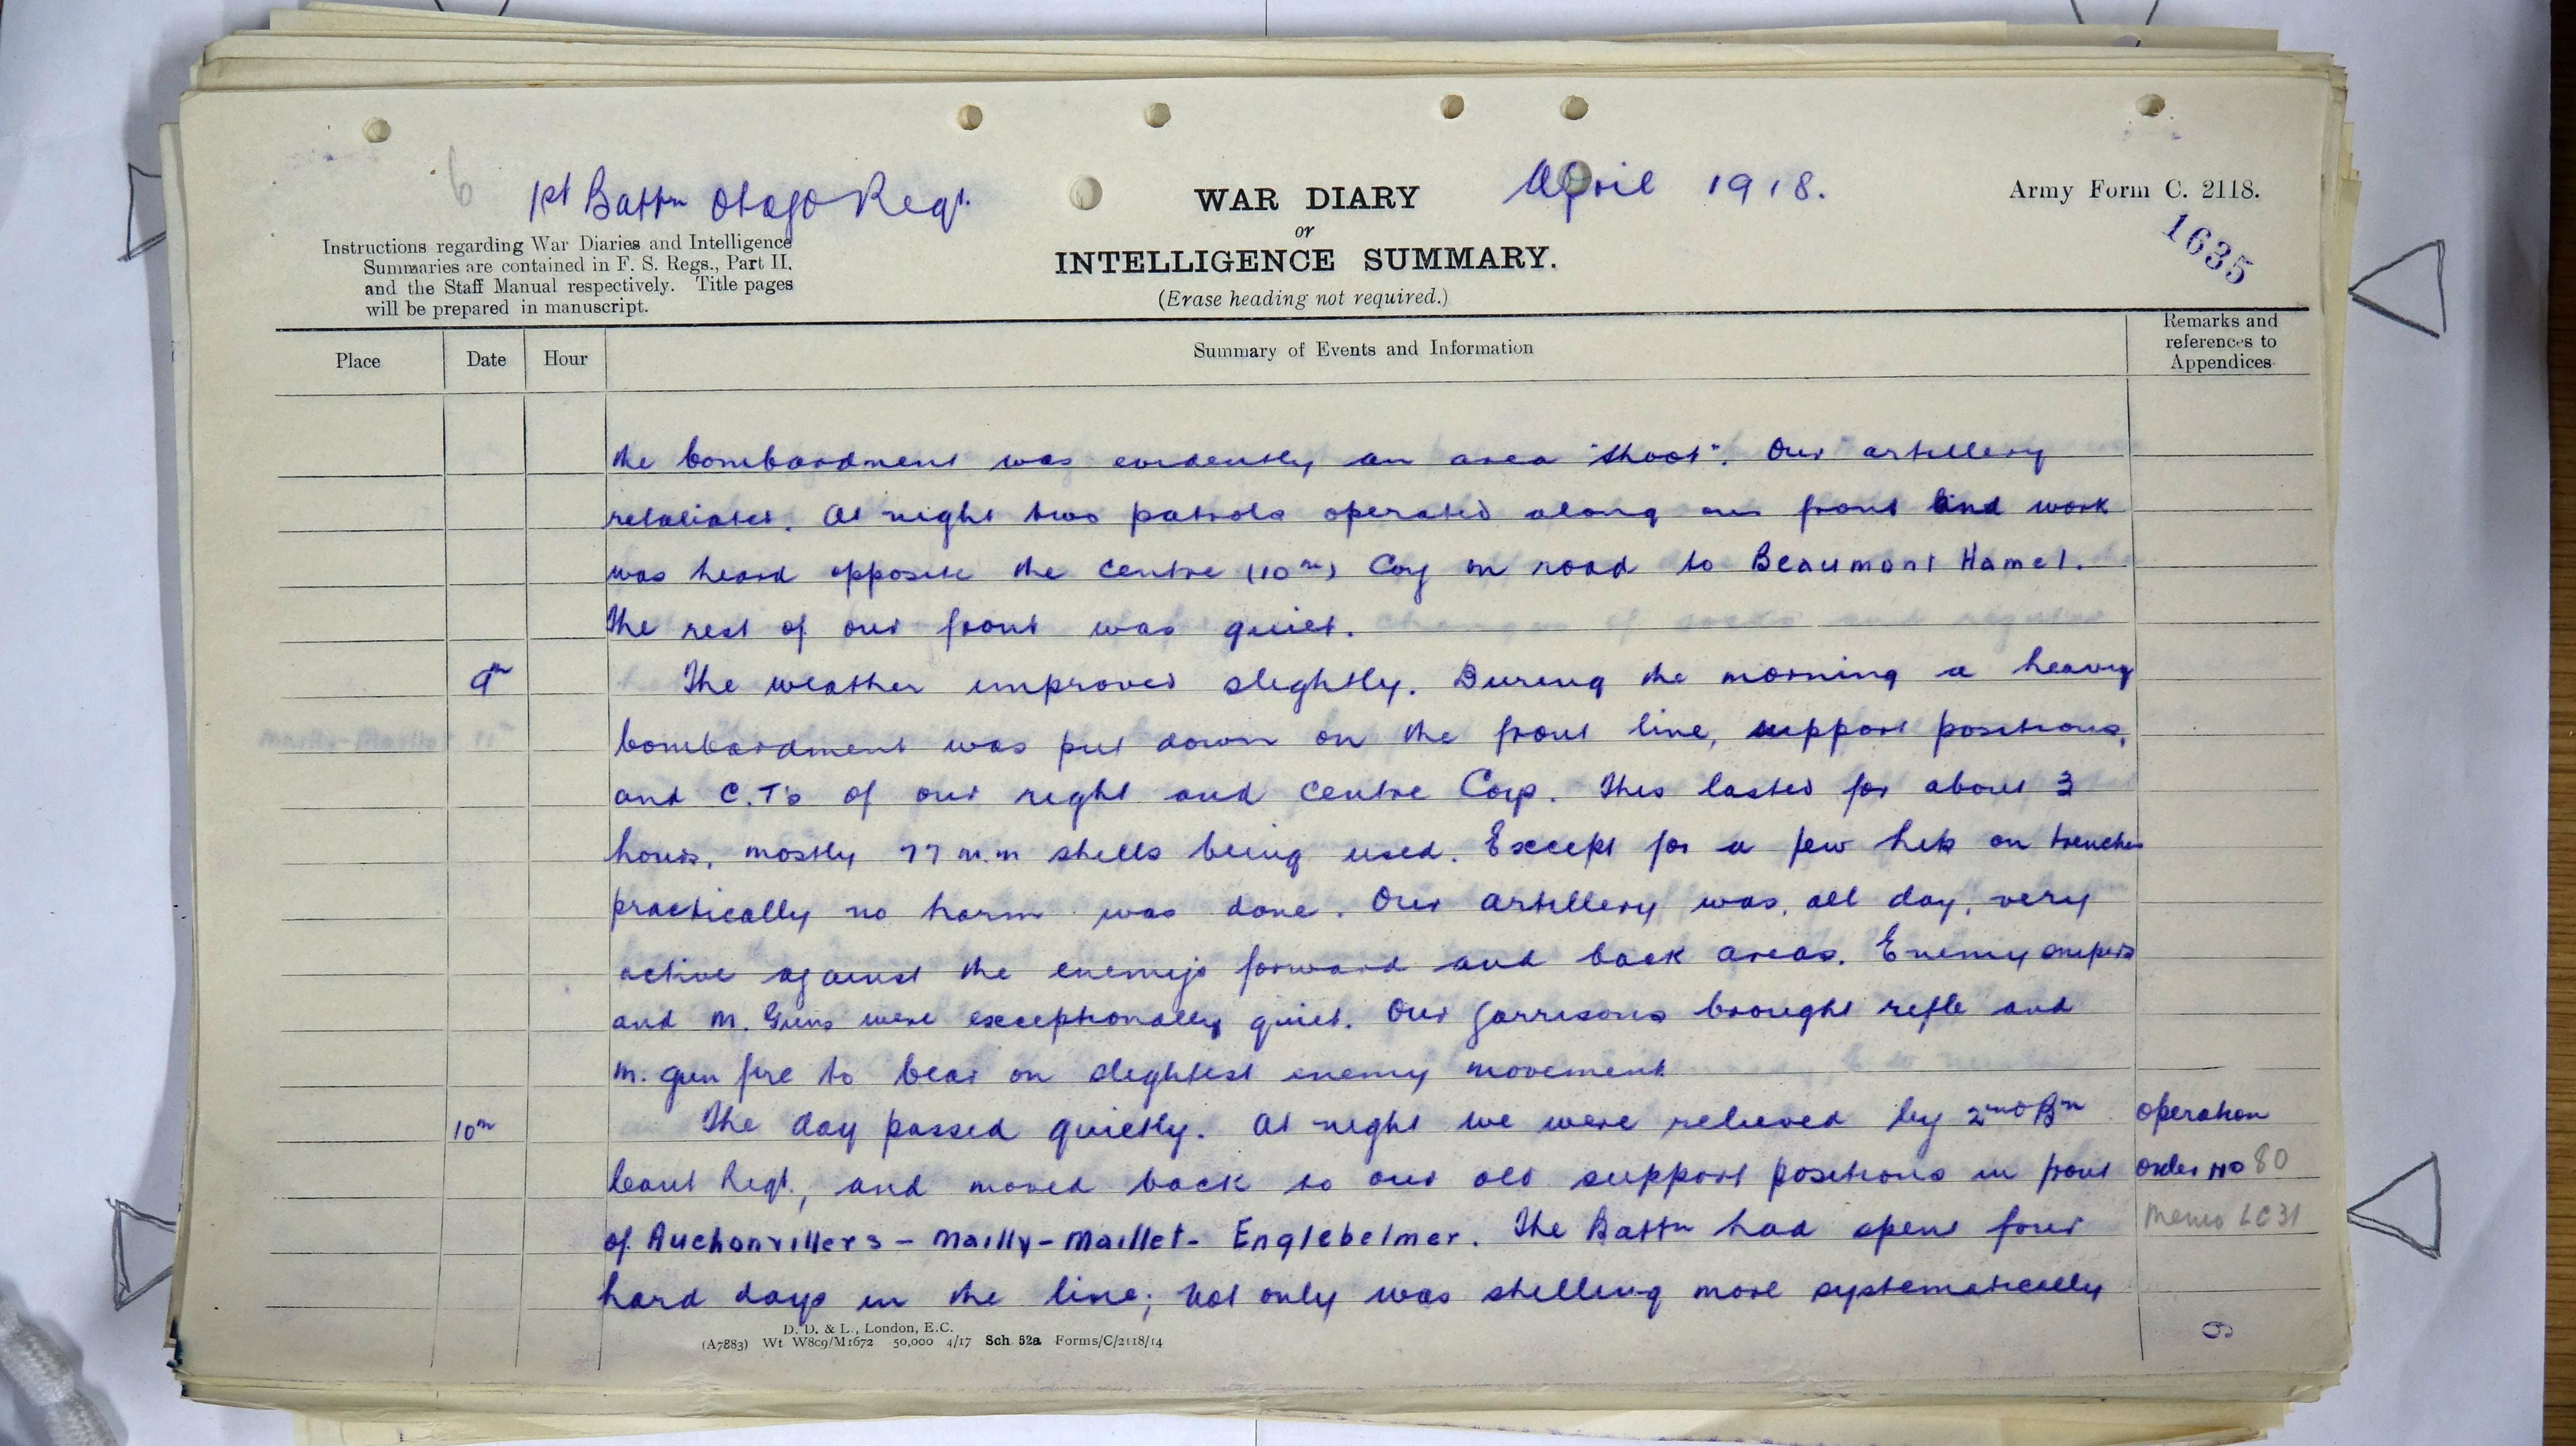 6 1st Battn Otago Regt.
WAR DIARY
or
INTELLIGENCE SUMMARY.
(Erase heading not required.)
April 1918.
Army Form C. 2118.
1635
Instructions regarding War Diaries and Intelligence
Summaries are contained in F. S. Regs., Part II.
and the Staff Manual respectively. Title pages
will be prepared in manuscript.
Place Date Hour Summary of Events and Information
Remarks and
references to
Appendices
the bombardment was evidently an area "shoot". Our artillery
retaliated. At night two patrols operated along our front and work
was heard opposite the centre (10th) Coy on road to Beaumont Hamel.
The rest of our front was quiet.
9th The weather improved slightly. During the morning a heavy
bombardment was put down on the front line, support positions,
and C.T's of our right and centre Coys. This lasted for about 3
hours, mostly 77 m.m shells being used. Except for a few hits on trenches
practically no harm was done. Our artillery was, all day, very
active against the enemy's forward and back areas. Enemy snipers
and M. Guns were exceptionally quiet. Our garrisons brought rifle and
m. gun fire to bear on slightest enemy movement
10th The day passed quietly. At night we were relieved by 2nd Bn operation
Cant Regt., and moved back to our old support positions in front order No 80
of Auchonvillers - Mailly-Maillet - Englebelmer. The Battn had spent four Memo LC31
hard days in the line; not only was shelling more systematically
D. D. & L., London, E.C.
(A7883) Wt W809/M1672 50,000 4/17 Sch. 52a Forms/C/2118/14